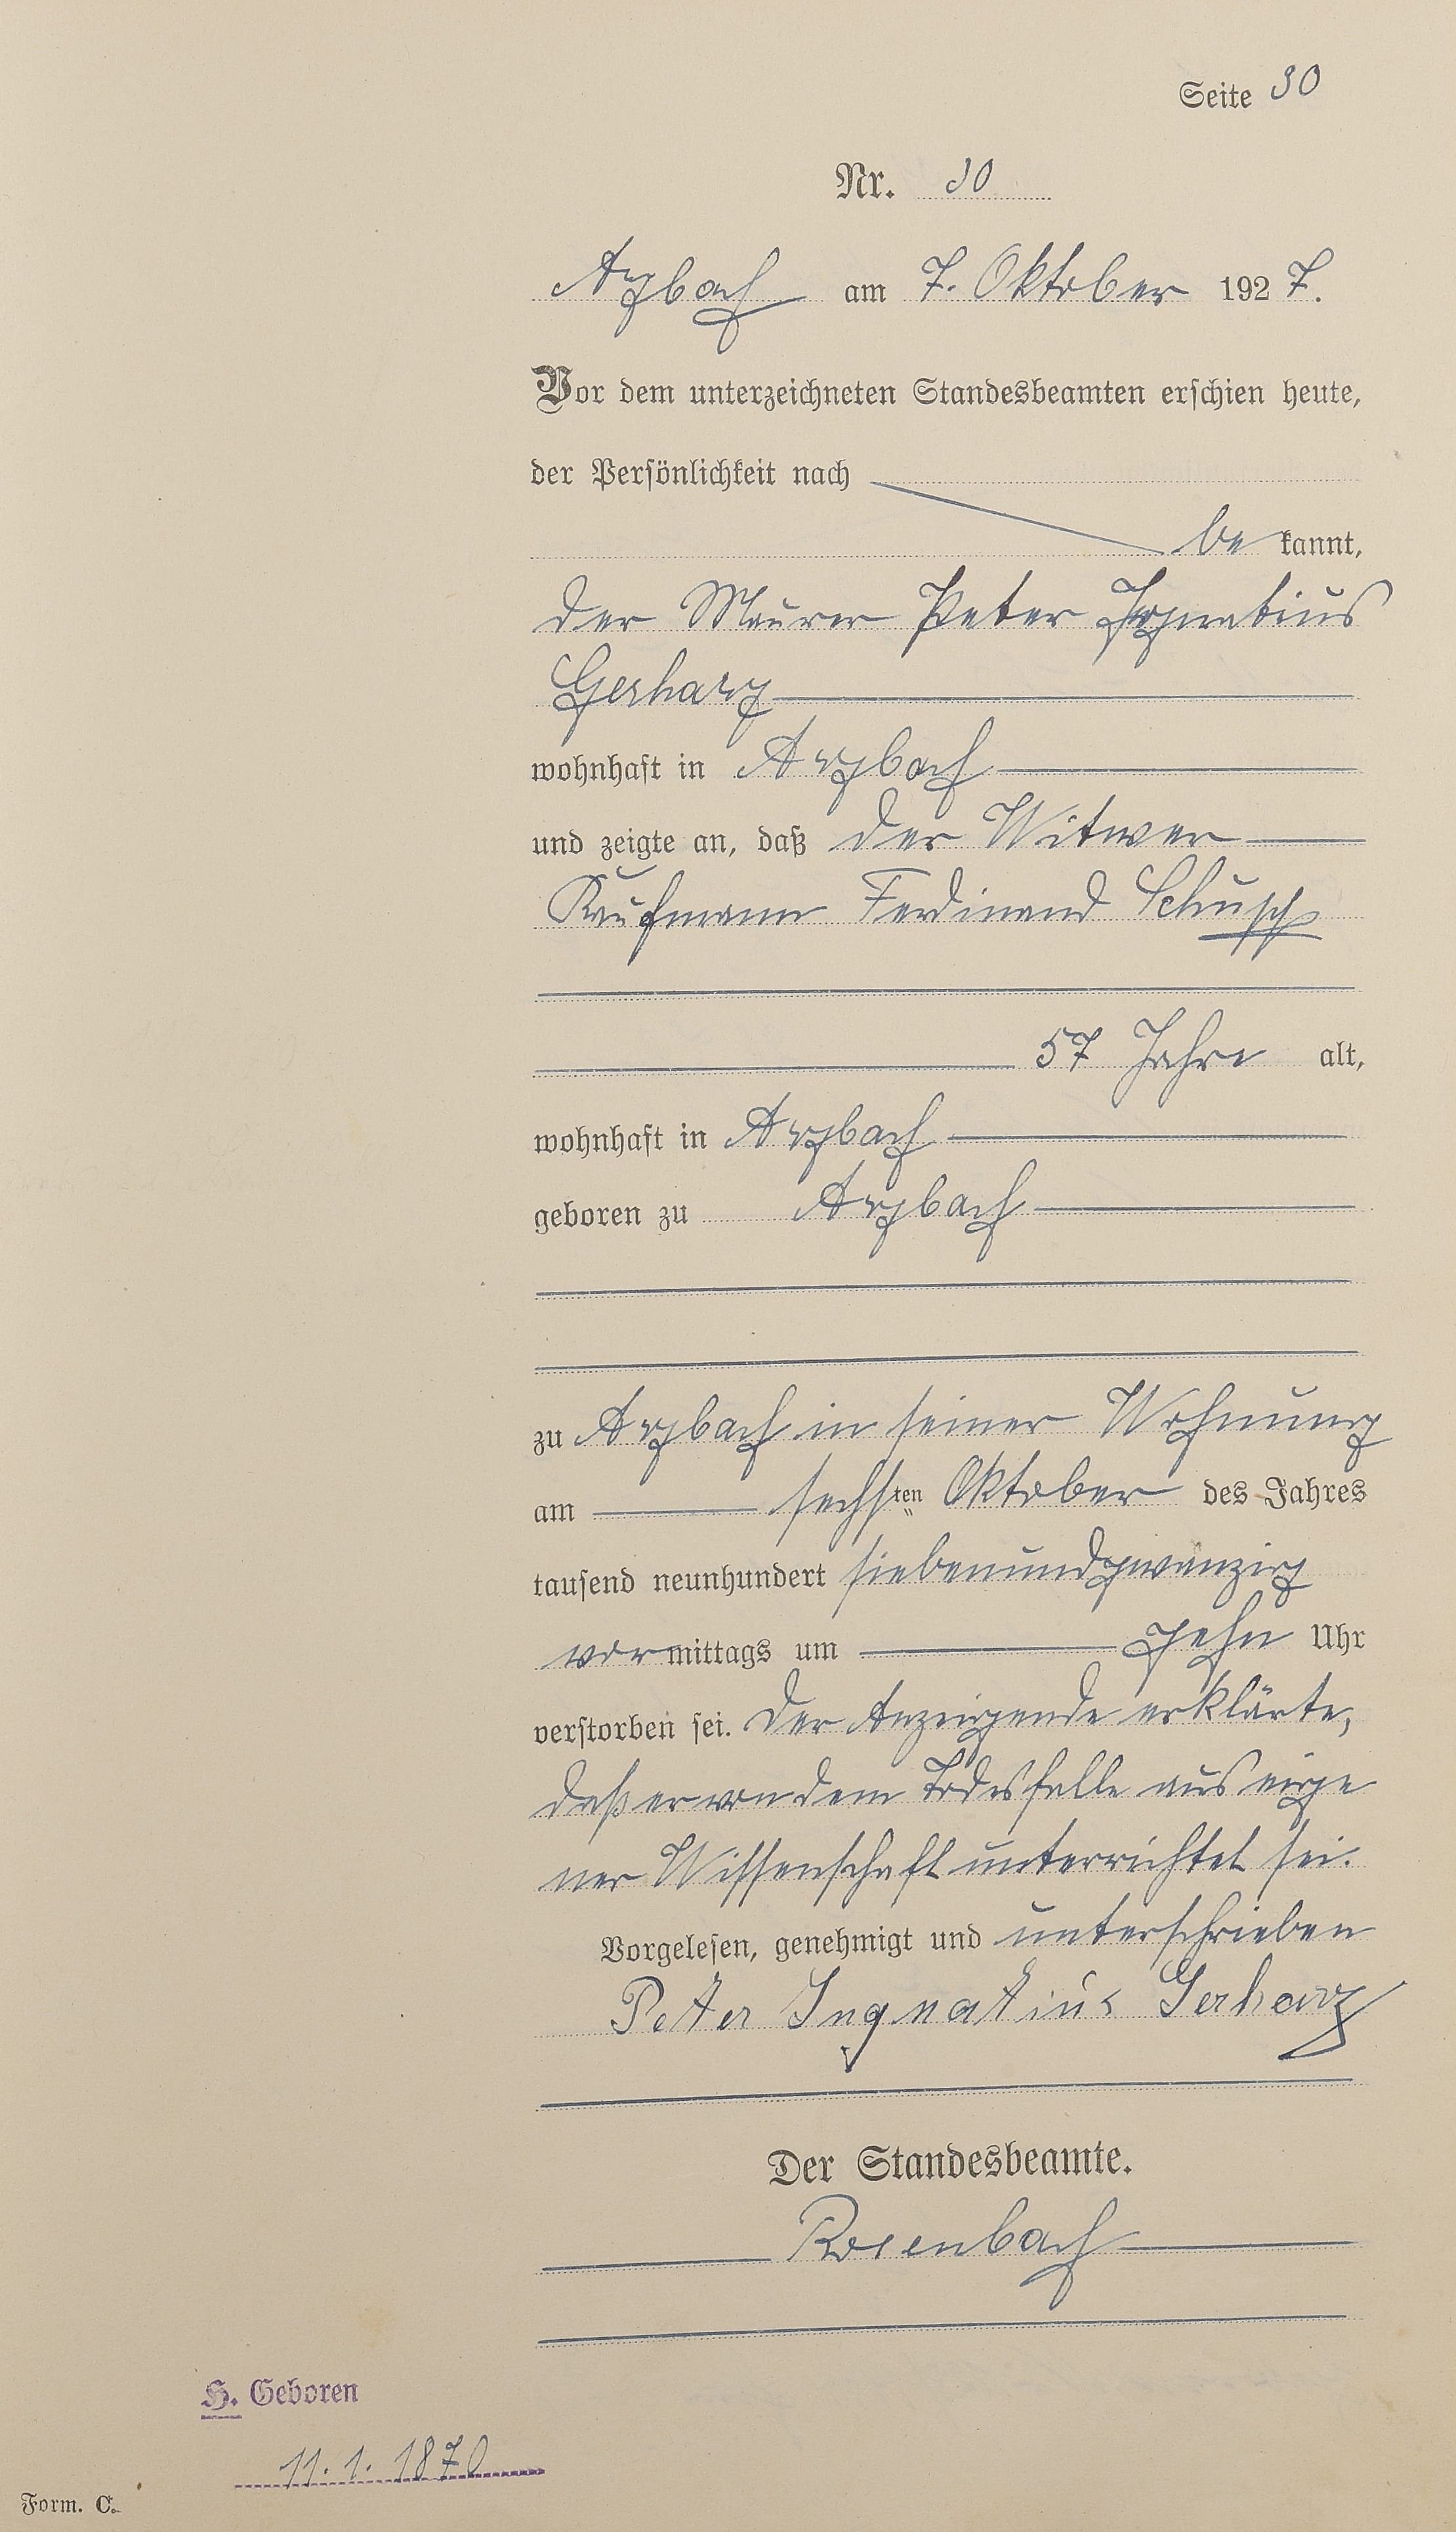 Seite 30
Nr. 30
Arzbach am 7. Oktober 1927.
Vor dem unterzeichneten Standesbeamten erschien heute,
der Persönlichkeit nach
be kannt,
der Maurer Peter Ignatius
Gerharz
wohnhaft in Arzbach
und zeigte an, daß der Witwer
Kaufmann Ferdinand
57 Jahre alt,
wohnhaft in Arzbach
geboren zu Arzbach
zu Arzbach in seiner Wohnung
am sechsten Oktober des Jahres
tausend neunhundert siebenundzwanzig
vormittags um zehn Uhr
verstorben sei. Der Anzeigende erklärte,
daß er von dem Todesfalle aus eige
ner Wissenschaft unterrichtet sei.
Vorgelesen, genehmigt und unterschrieben
Peter Ingnatius Gerharz
Der Standesbeamte.
Rosenbach
H. Geboren
11. 1. 1870
Form. C.